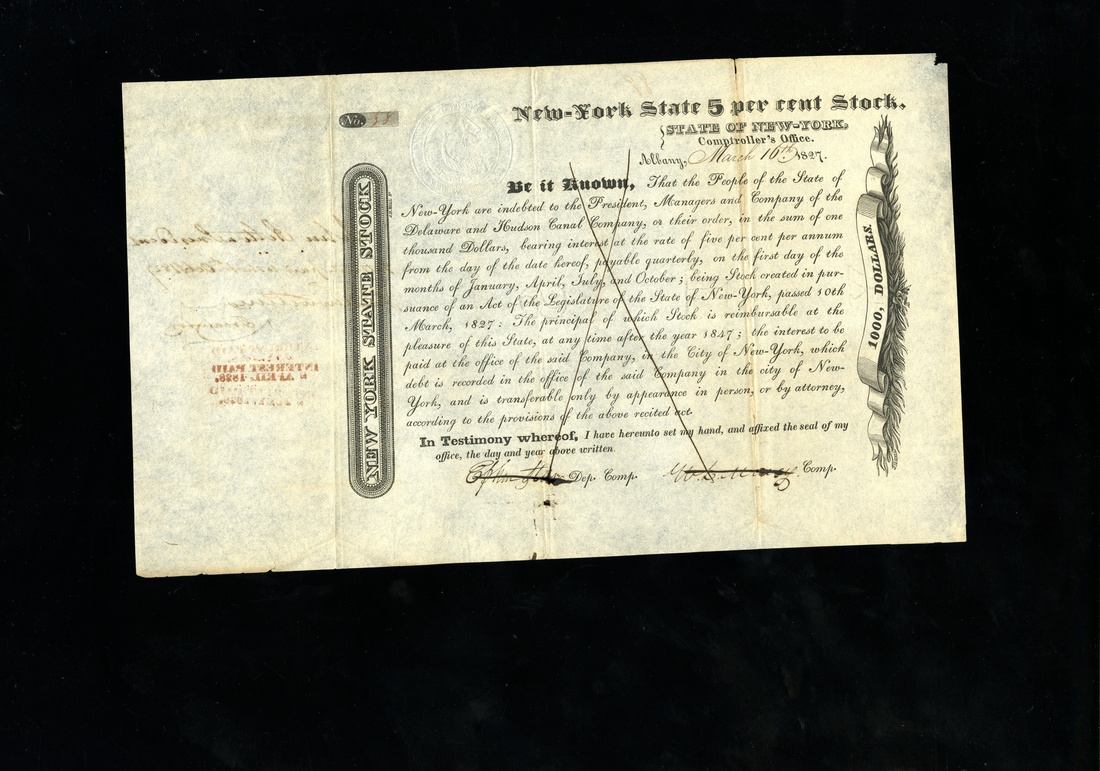 New-York State 5 per cent Stock.
No. 33
STATE OF NEW-YORK,
Comptroller's Office.
Albany, March 16th 1827.
Be it Known, That the People of the State of
New-York are indebted to the President, Managers and Company of the
Delaware and Hudson Canal Company, or their order, in the sum of one
thousand Dollars, bearing interest at the rate of five per cent per annum
from the day of the date hereof, payable quarterly, on the first day of the
months of January, April, July, and October; being Stock created in pur-
suance of an Act of the Legislature of the State of New-York, passed 10th
March, 1827: The principal of which Stock is reimbursable at the
pleasure of this State, at any time after the year 1847; the interest to be
paid at the office of the said Company, in the City of New-York, which
debt is recorded in the office of the said Company in the city of New-
York, and is transferable only by appearance in person, or by attorney,
according to the provisions of the above recited act.
In Testimony whereof, I have hereunto set my hand, and affixed the seal of my
office, the day and year above written.
Dep. Comp.
Comp.
NEW YORK STATE STOCK
1000, DOLLARS.
INTEREST PAID